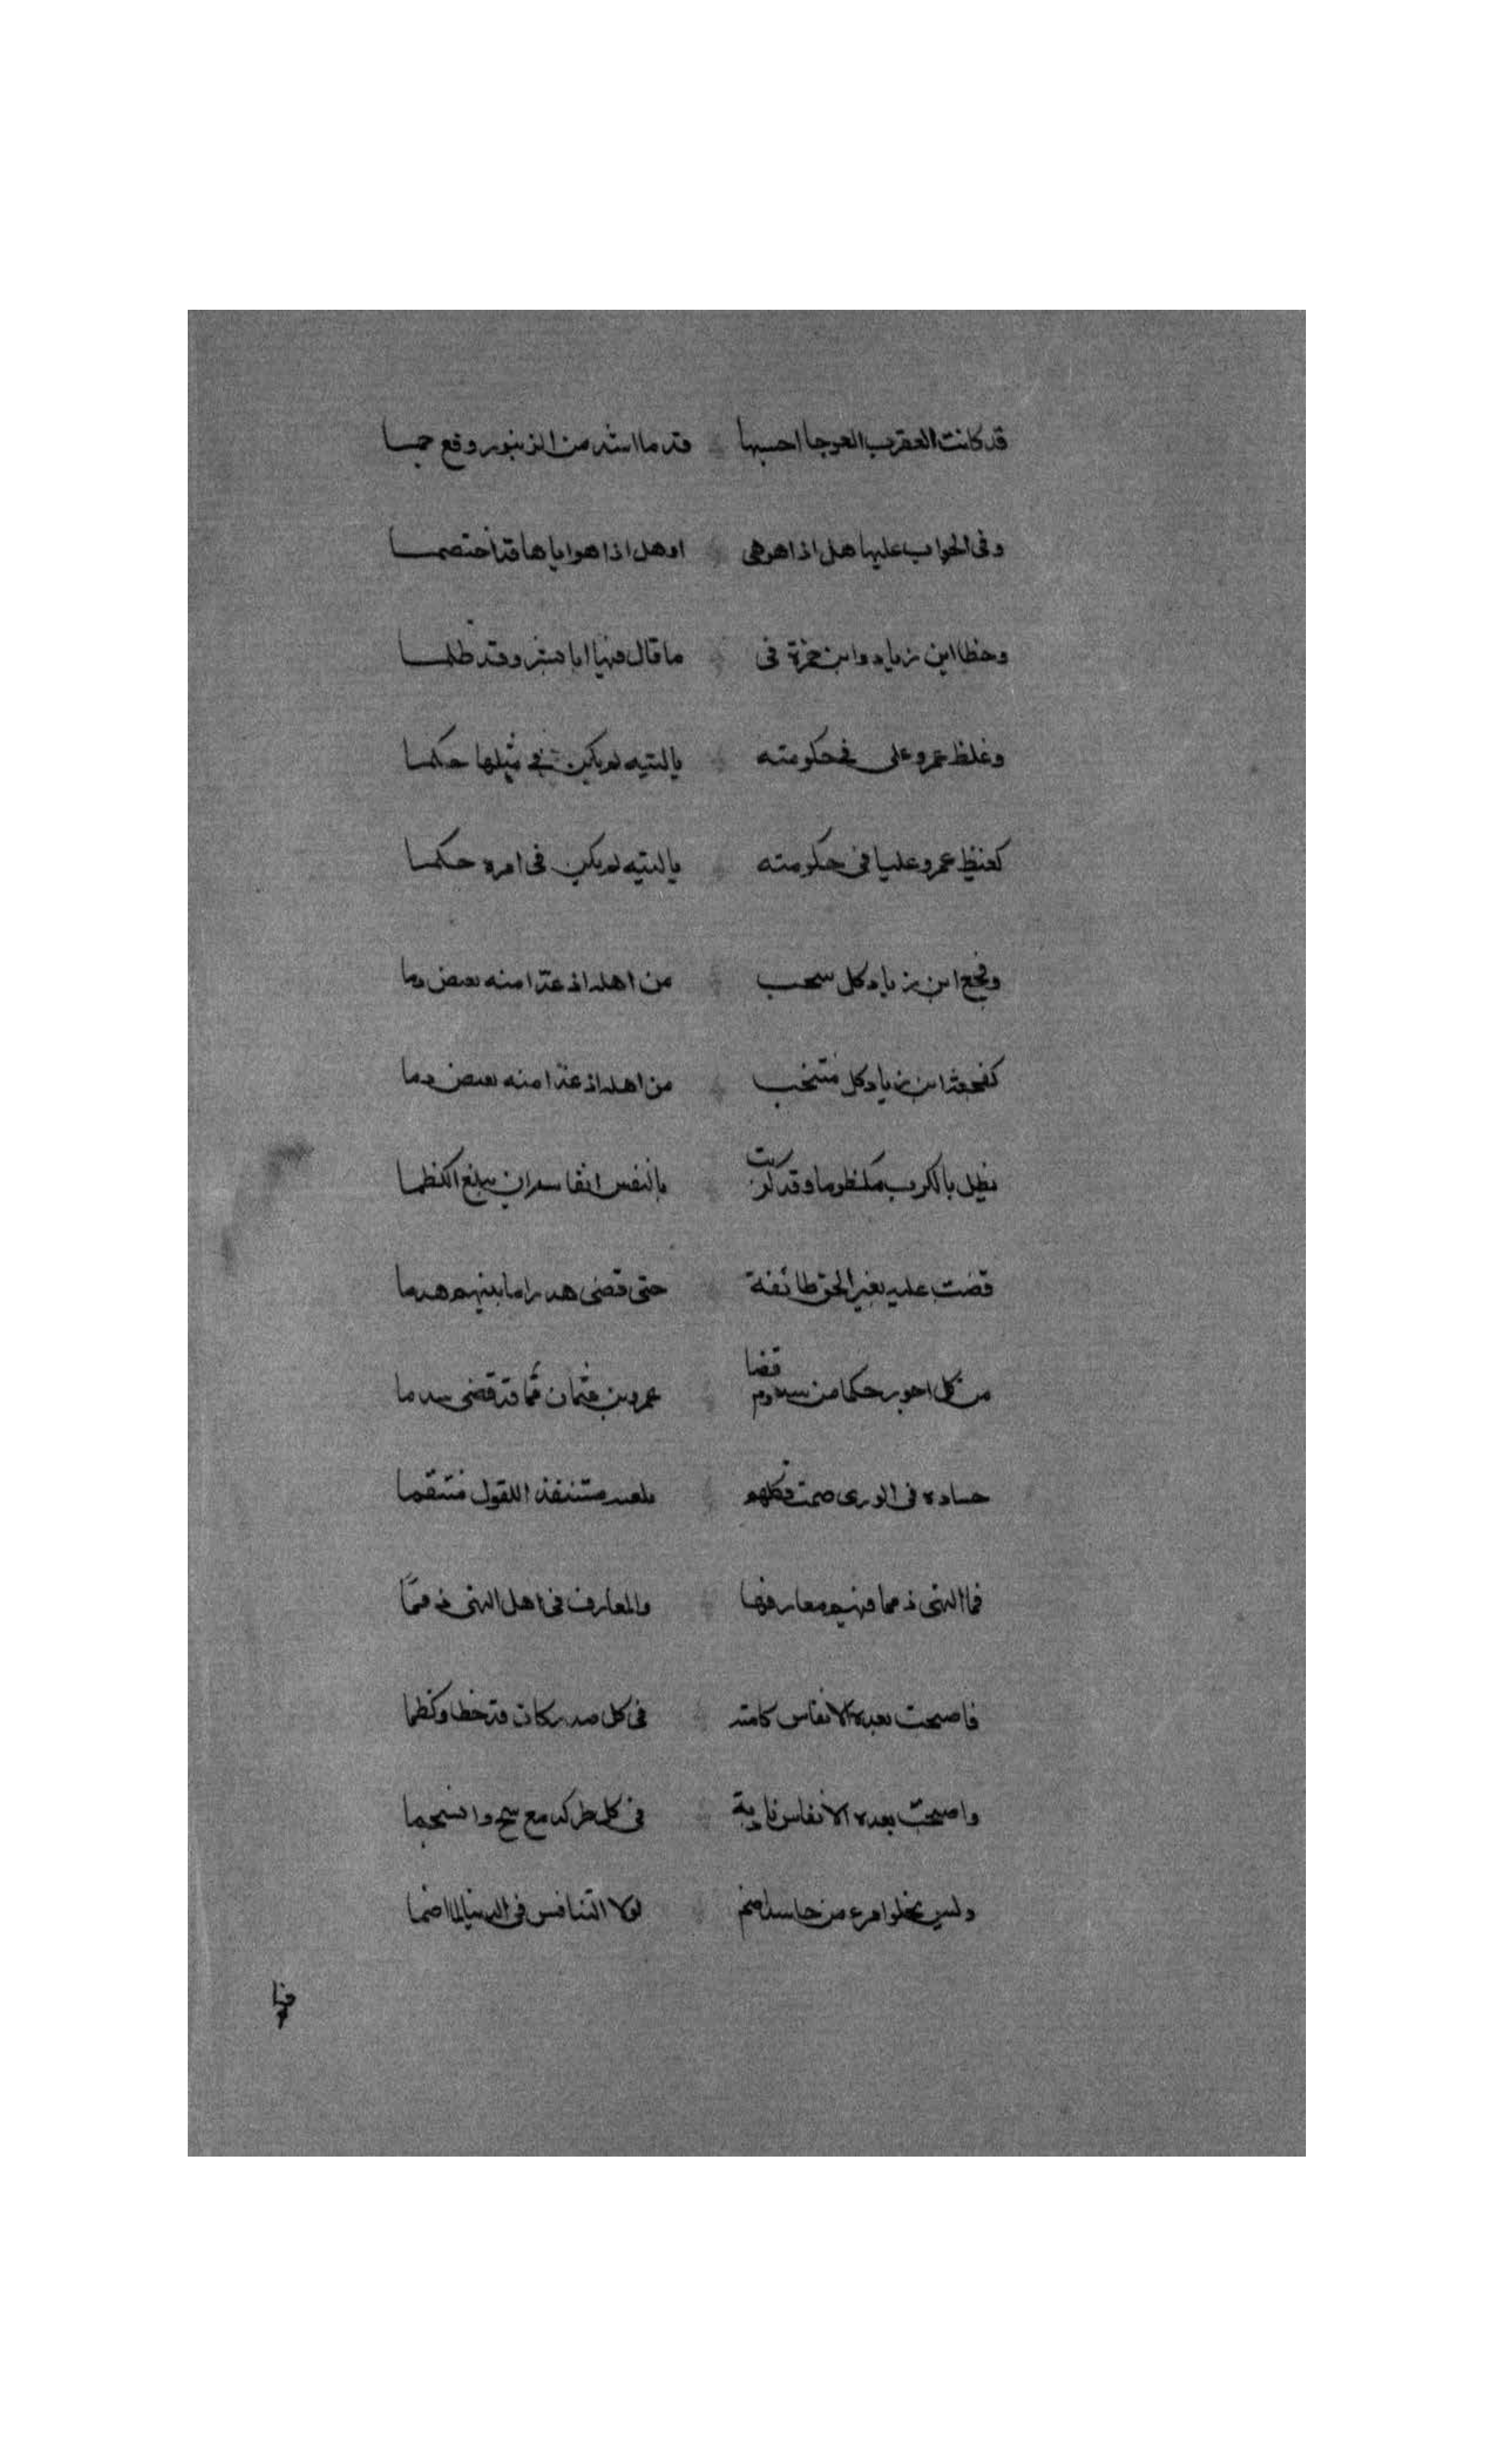 قد كانت العقرب العوجا احسبها قدما اشد من الزنبور وقع حمسا
وفى الجواب عليها هل اذا هو هى او هل اذا هو اياها قد اختصمسا
وخطا ابن زياد وابن حمزة فى ما قال فيها ابا بشر وقد ظلمسا
وغلظ عمرو على فى حكومته يا ليته لم يكن فى مثلها حكمسا
كغيظ عمرو عليا فى حكومته يا ليته لم يكن فى امره حكمسا
وفجع ابن زياد كل منتحب من اهله اذ غدا منه بعض دما
كفجعة ابن زياد كل منتخب من اهله اذ غدا منه بعض دما
يظل بالكرب مكظوما وقد كربت بالنفس انفاسه ان يبلغ الكظما
قضت عليه بغير الحق طائفة حتى قضى هدرا ما بينهم هدما
من كل اجور حكما من سدوم قضا عمرو بن عثمان مما قد قضى سدما
حساده فى الورى صمت فكلهم منتقدا للقول منتقما
فما النهى ذمما فيهم معارفها والمعارف فى اهل النهى ذمما
فاصبحت بعده الانفاس كامنة فى كل صدر كان قد كظ او كظما
واصبحت بعده الانفاس فى كل طرس كدمع سح وانسجما
وليس يخلو امرء من حاسد اضم لولا التنافس فى الدنيا لما اضما